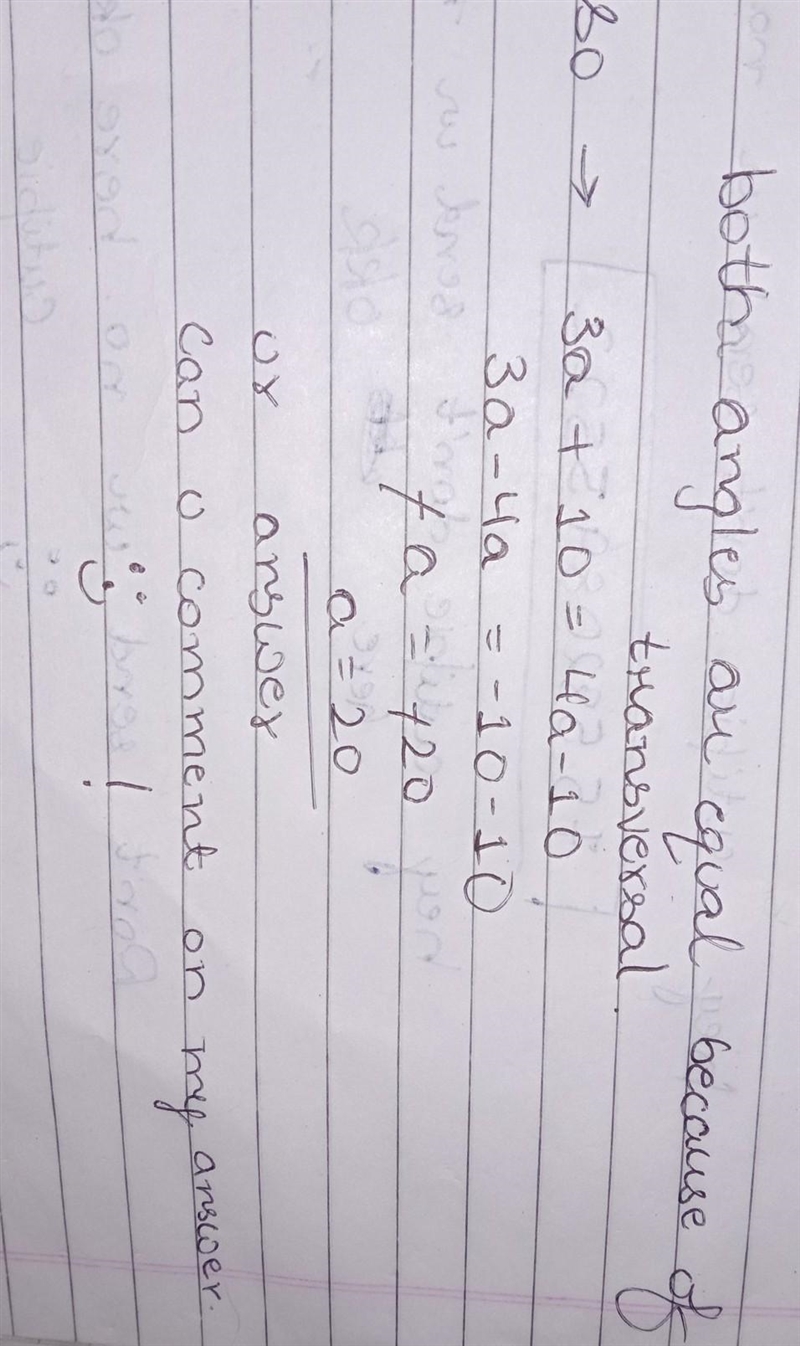 both angles are equal because of
transversal.
so → 3a + 10 = 4a - 10
3a - 4a = -10 - 10
-a = -20
a = 20
ur answer
Can u comment on my answer.
!